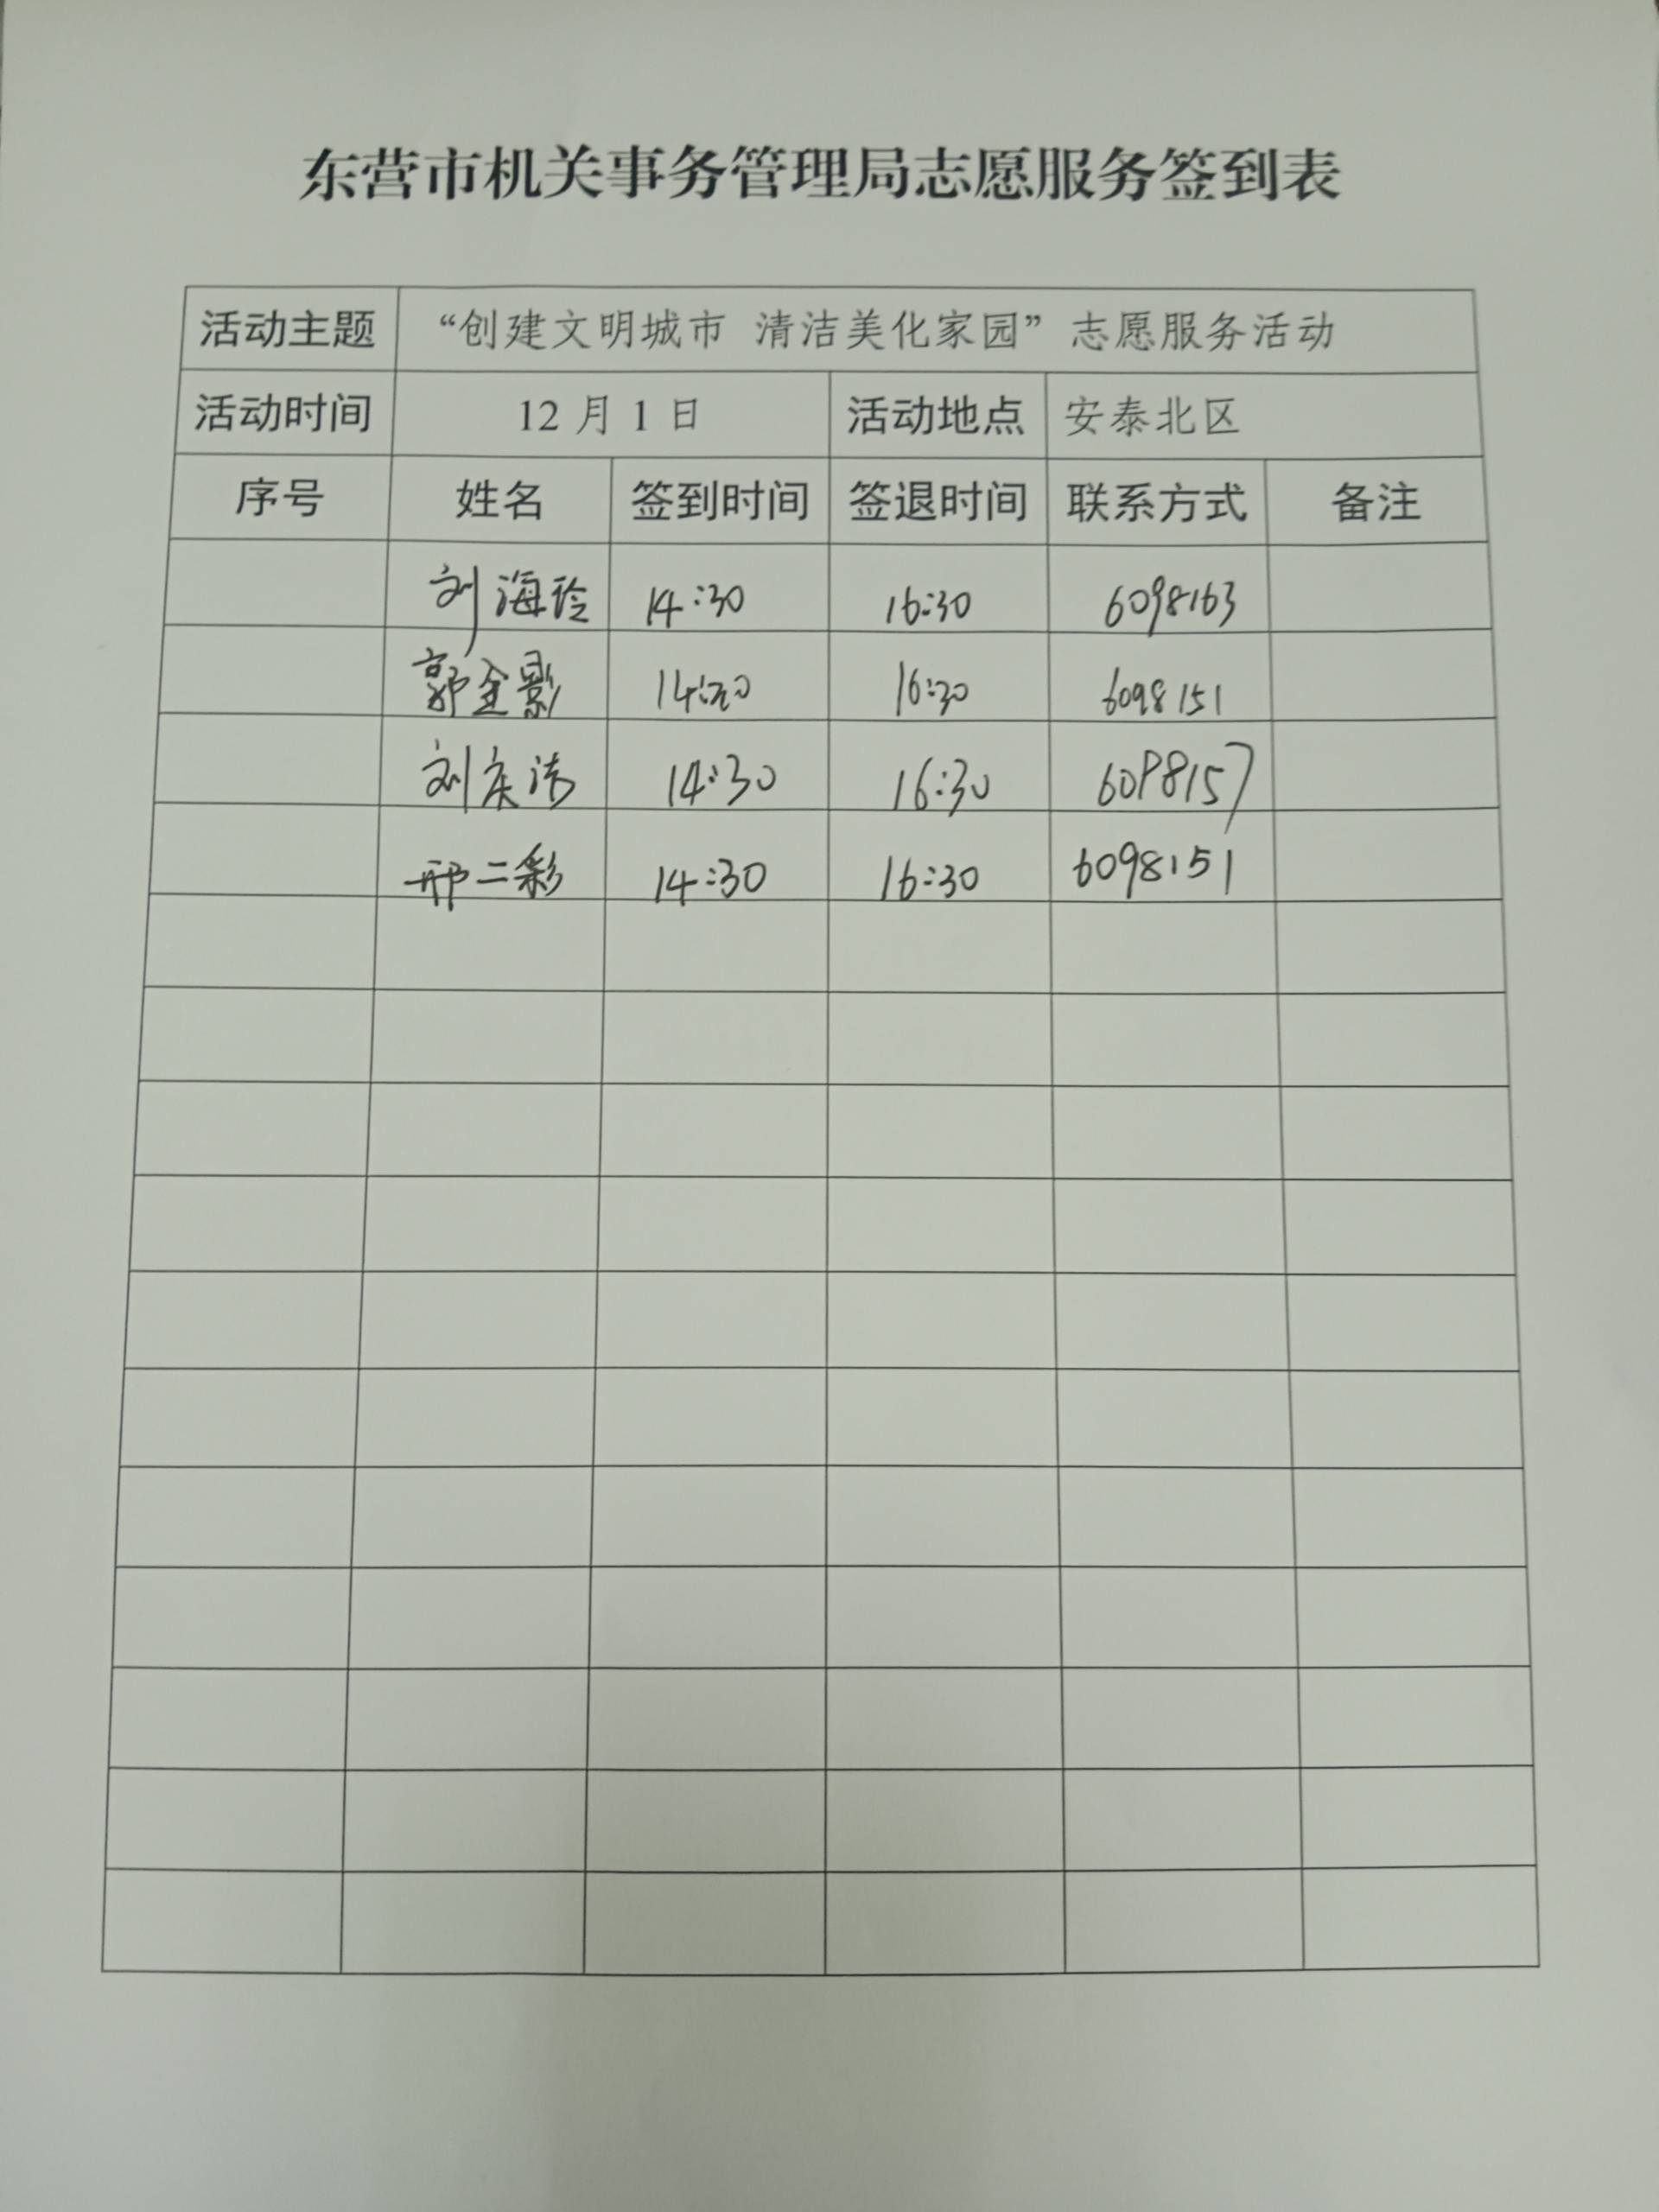 东营市机关事务管理局志愿服务签到表
活动主题 “创建文明城市 清洁美化家园”志愿服务活动
活动时间 12月1日 活动地点 安泰北区
序号 姓名 签到时间 签退时间 联系方式 备注
刘海玲 14:30 16:30 6098163
郭全影 14:30 16:30 6098151
刘庆涛 14:30 16:30 6098157
邢二彩 14:30 16:30 6098151